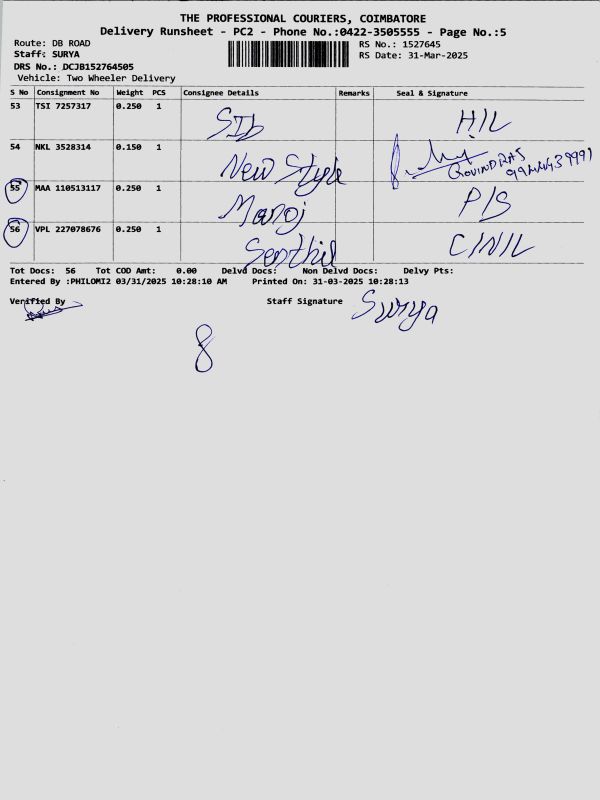 THE PROFESSIONAL COURIERS, COIMBATORE
Delivery Runsheet - PC2 - Phone No.:0422-3505555 - Page No.:5
Route: DB ROAD RS No.: 1527645
Staff: SURYA RS Date: 31-Mar-2025
DRS No.: DCJB152764505
Vehicle: Two Wheeler Delivery
S No Consignment No Weight PCS Consignee Details Remarks Seal & Signature
53 TSI 7257317 0.250 1 SIb H/L
54 NKL 3528314 0.150 1 New Style GOVINDRAJ
55 MAA 110513117 0.250 1 Manoj P/S
56 VPL 227078676 0.250 1 Senthil
Tot Docs: 56 Tot COD Amt: 0.00 Delvd Docs: Non Delvd Docs: Delvy Pts:
Entered By :PHILOMI2 03/31/2025 10:28:10 AM Printed On: 31-03-2025 10:28:13
Verified By Staff Signature Surya
8